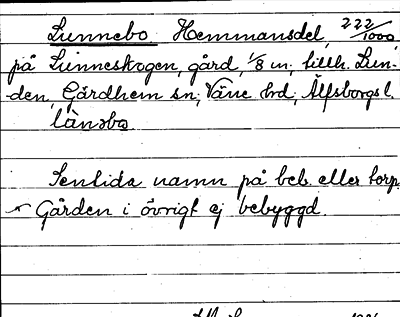 Lunnebo Hemmansdel, 222/1000
på Lunneskogen, gård, 1/8 m, tillh. Lun-
den, Gärdhem sn, Väne hd, Älfsborgs l.
länsbo
Sentida namn på beb. eller torp.
Gården i övrigt ej bebyggd.